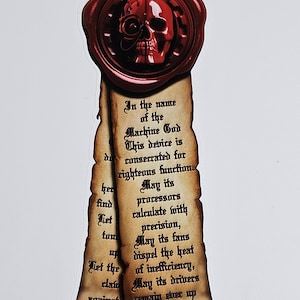 In the name
of the
Machine God
This device is
consecrated for
righteous function
May its
processors
calculate with
precision,
May its fans
dispel the heat
of inefficiency,
May its drivers
remain ever up
her
find
Let
Let the